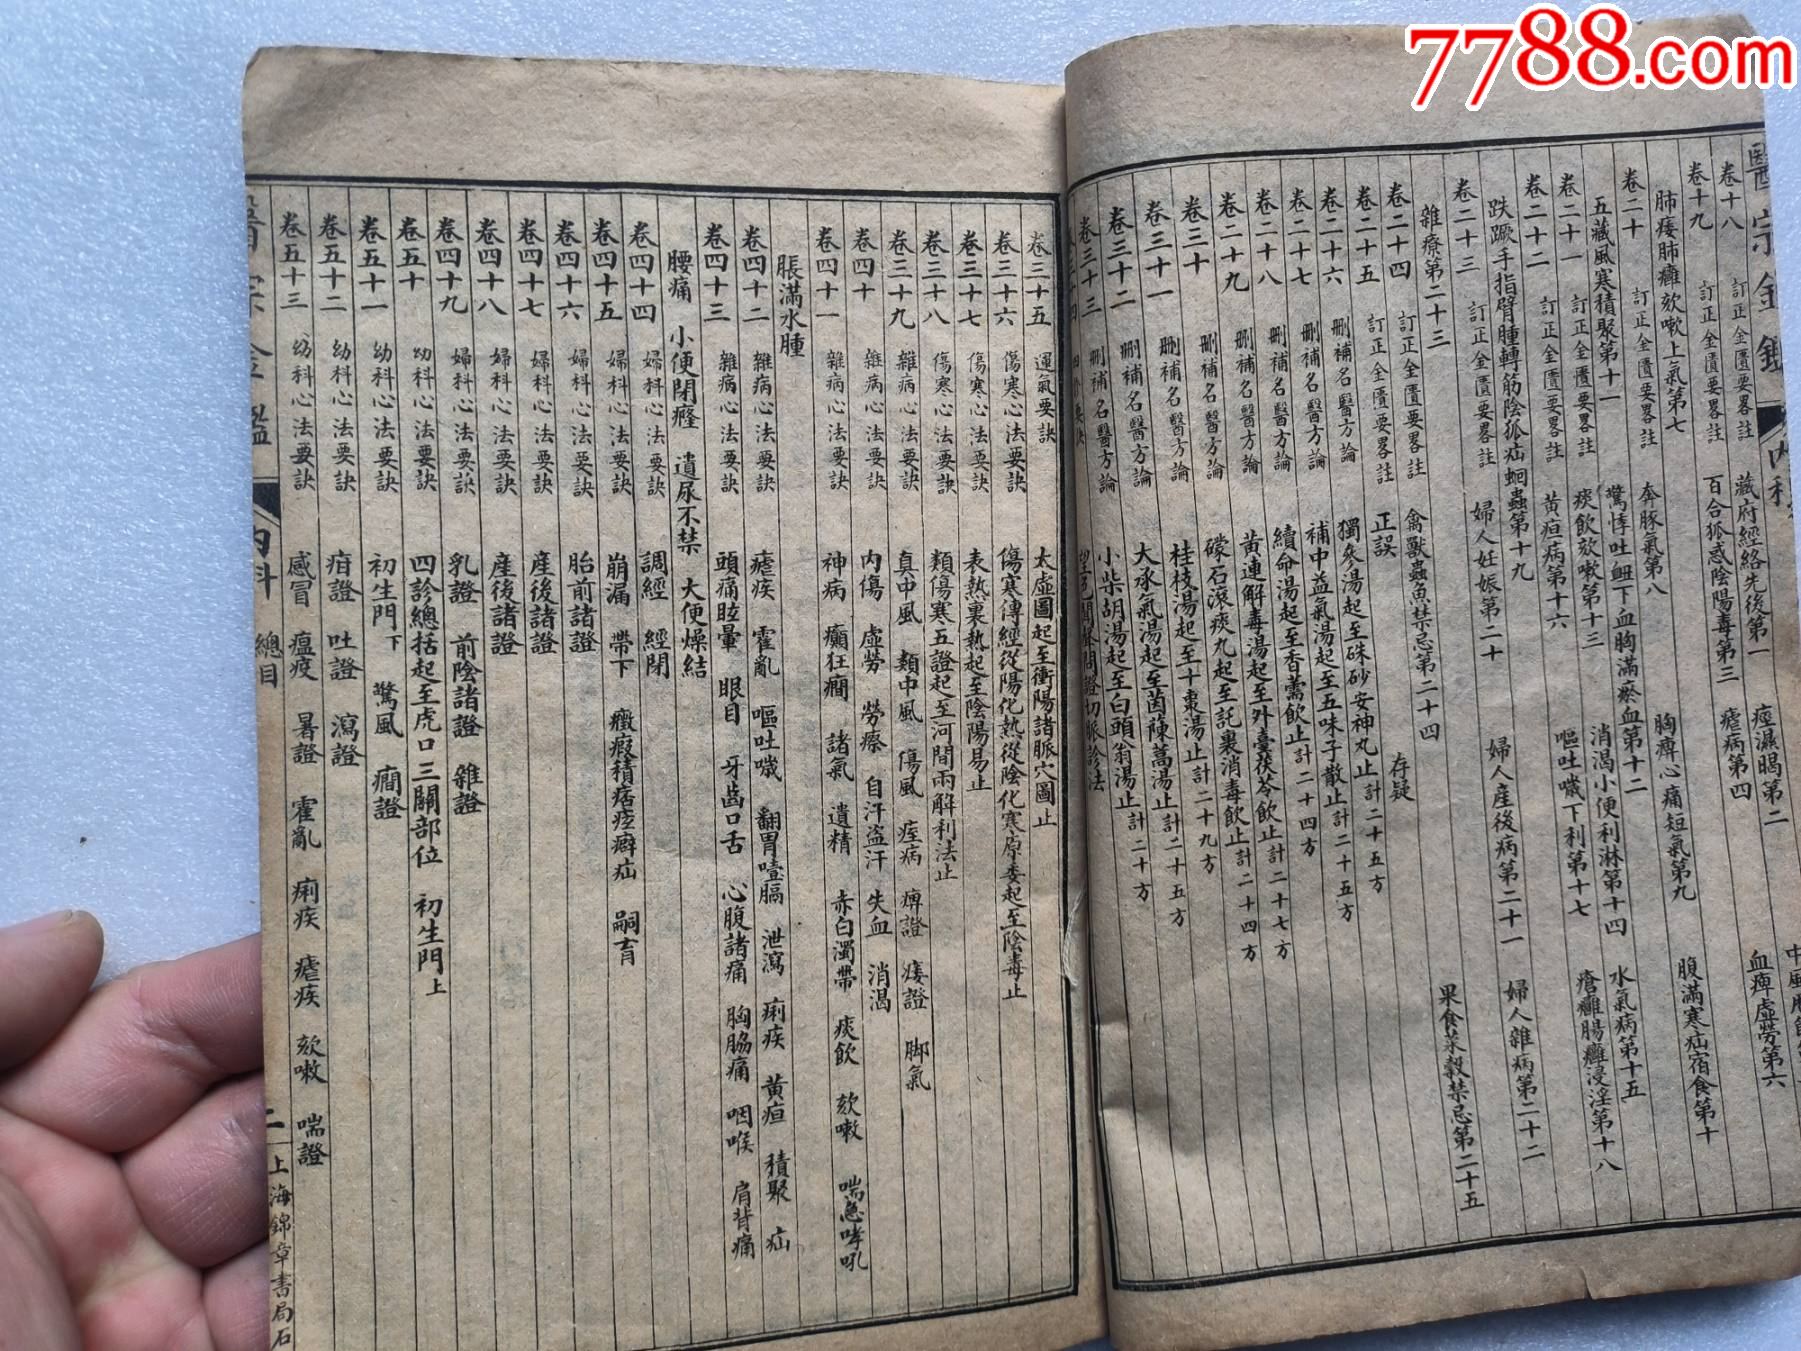 7788.com
醫宗金鑑
內科
卷十八 訂正金匱要畧註 藏府經絡先後第一 痙濕暍第二
百合狐惑陰陽毒第三 瘧病第四
血痺虛勞第六
卷十九 訂正金匱要畧註
肺痿肺癰欬嗽上氣第七 奔豚氣第八 胸痺心痛短氣第九 腹滿寒疝宿食第十
卷二十 訂正金匱要畧註
五藏風寒積聚第十一 痰飲欬嗽第十三 消渴小便利淋第十四 水氣病第十五
卷二十一 訂正金匱要畧註 黃疸病第十六 嘔吐噦下利第十七 瘡癰腸癰浸淫第十八
驚悸吐衄下血胸滿瘀血第十二
卷二十二 訂正金匱要畧註
趺蹶手指臂腫轉筋陰狐疝蚘蟲第十九 婦人妊娠第二十 婦人產後病第二十一 婦人雜病第二十二
卷二十三 訂正金匱要畧註
雜療第二十三 禽獸蟲魚禁忌第二十四 果食菜穀禁忌第二十五
卷二十四 訂正金匱要畧註 正誤 存疑
卷二十五 訂正金匱要畧註
卷二十六 刪補名醫方論 獨參湯起至硃砂安神丸止計二十五方
卷二十七 刪補名醫方論 補中益氣湯起至五味子散止計二十五方
卷二十八 刪補名醫方論 續命湯起至香薷飲止計二十四方
卷二十九 刪補名醫方論 黃連解毒湯起至外臺茯苓飲止計二十七方
卷三十 刪補名醫方論 礞石滾痰丸起至託裏消毒飲止計二十四方
卷三十一 刪補名醫方論 桂枝湯起至十棗湯止計二十九方
卷三十二 刪補名醫方論 大承氣湯起至茵蔯蒿湯止計二十五方
卷三十三 刪補名醫方論 小柴胡湯起至白頭翁湯止計二十方
卷三十五 運氣要訣 太虛圖起至衝陽諸脈穴圖止
卷三十六 傷寒心法要訣 傷寒傳經從陽化熱從陰化寒原委起至陰毒止
卷三十七 傷寒心法要訣 表熱裏熱起至陰陽易止
卷三十八 傷寒心法要訣 類傷寒五證起至河間兩解利法止
卷三十九 雜病心法要訣 真中風 類中風 傷風 痙病 痺證 痿證 脚氣
卷四十 雜病心法要訣 內傷 虛勞 勞瘵 自汗盜汗 失血 消渴
卷四十一 雜病心法要訣 神病 癲狂癇 諸氣 遺精 赤白濁帶 痰飲 欬嗽 喘急哮吼
脹滿水腫
卷四十二 雜病心法要訣 瘧疾 霍亂 嘔吐噦 翻胃噎膈 泄瀉 痢疾 黃疸 積聚 疝
卷四十三 雜病心法要訣 頭痛眩暈 眼目 牙齒口舌 心腹諸痛 胸脇痛 咽喉 肩背痛
腰痛 小便閉癃 遺尿不禁 大便燥結
卷四十四 婦科心法要訣 調經 經閉
卷四十五 婦科心法要訣 崩漏 帶下 癥瘕積痞痃癖疝 嗣育
卷四十六 婦科心法要訣 胎前諸證
卷四十七 婦科心法要訣 產後諸證
卷四十八 婦科心法要訣 產後諸證
卷四十九 婦科心法要訣 乳證 前陰諸證 雜證
卷五十 幼科心法要訣 四診總括起至虎口三關部位 初生門上
卷五十一 幼科心法要訣 初生門下 驚風 癇證
卷五十二 幼科心法要訣 疳證 吐證 瀉證
卷五十三 幼科心法要訣 感冒 瘟疫 暑證 霍亂 痢疾 瘧疾 欬嗽 喘證
醫宗金鑑 內科 總目 二 上海錦章書局石